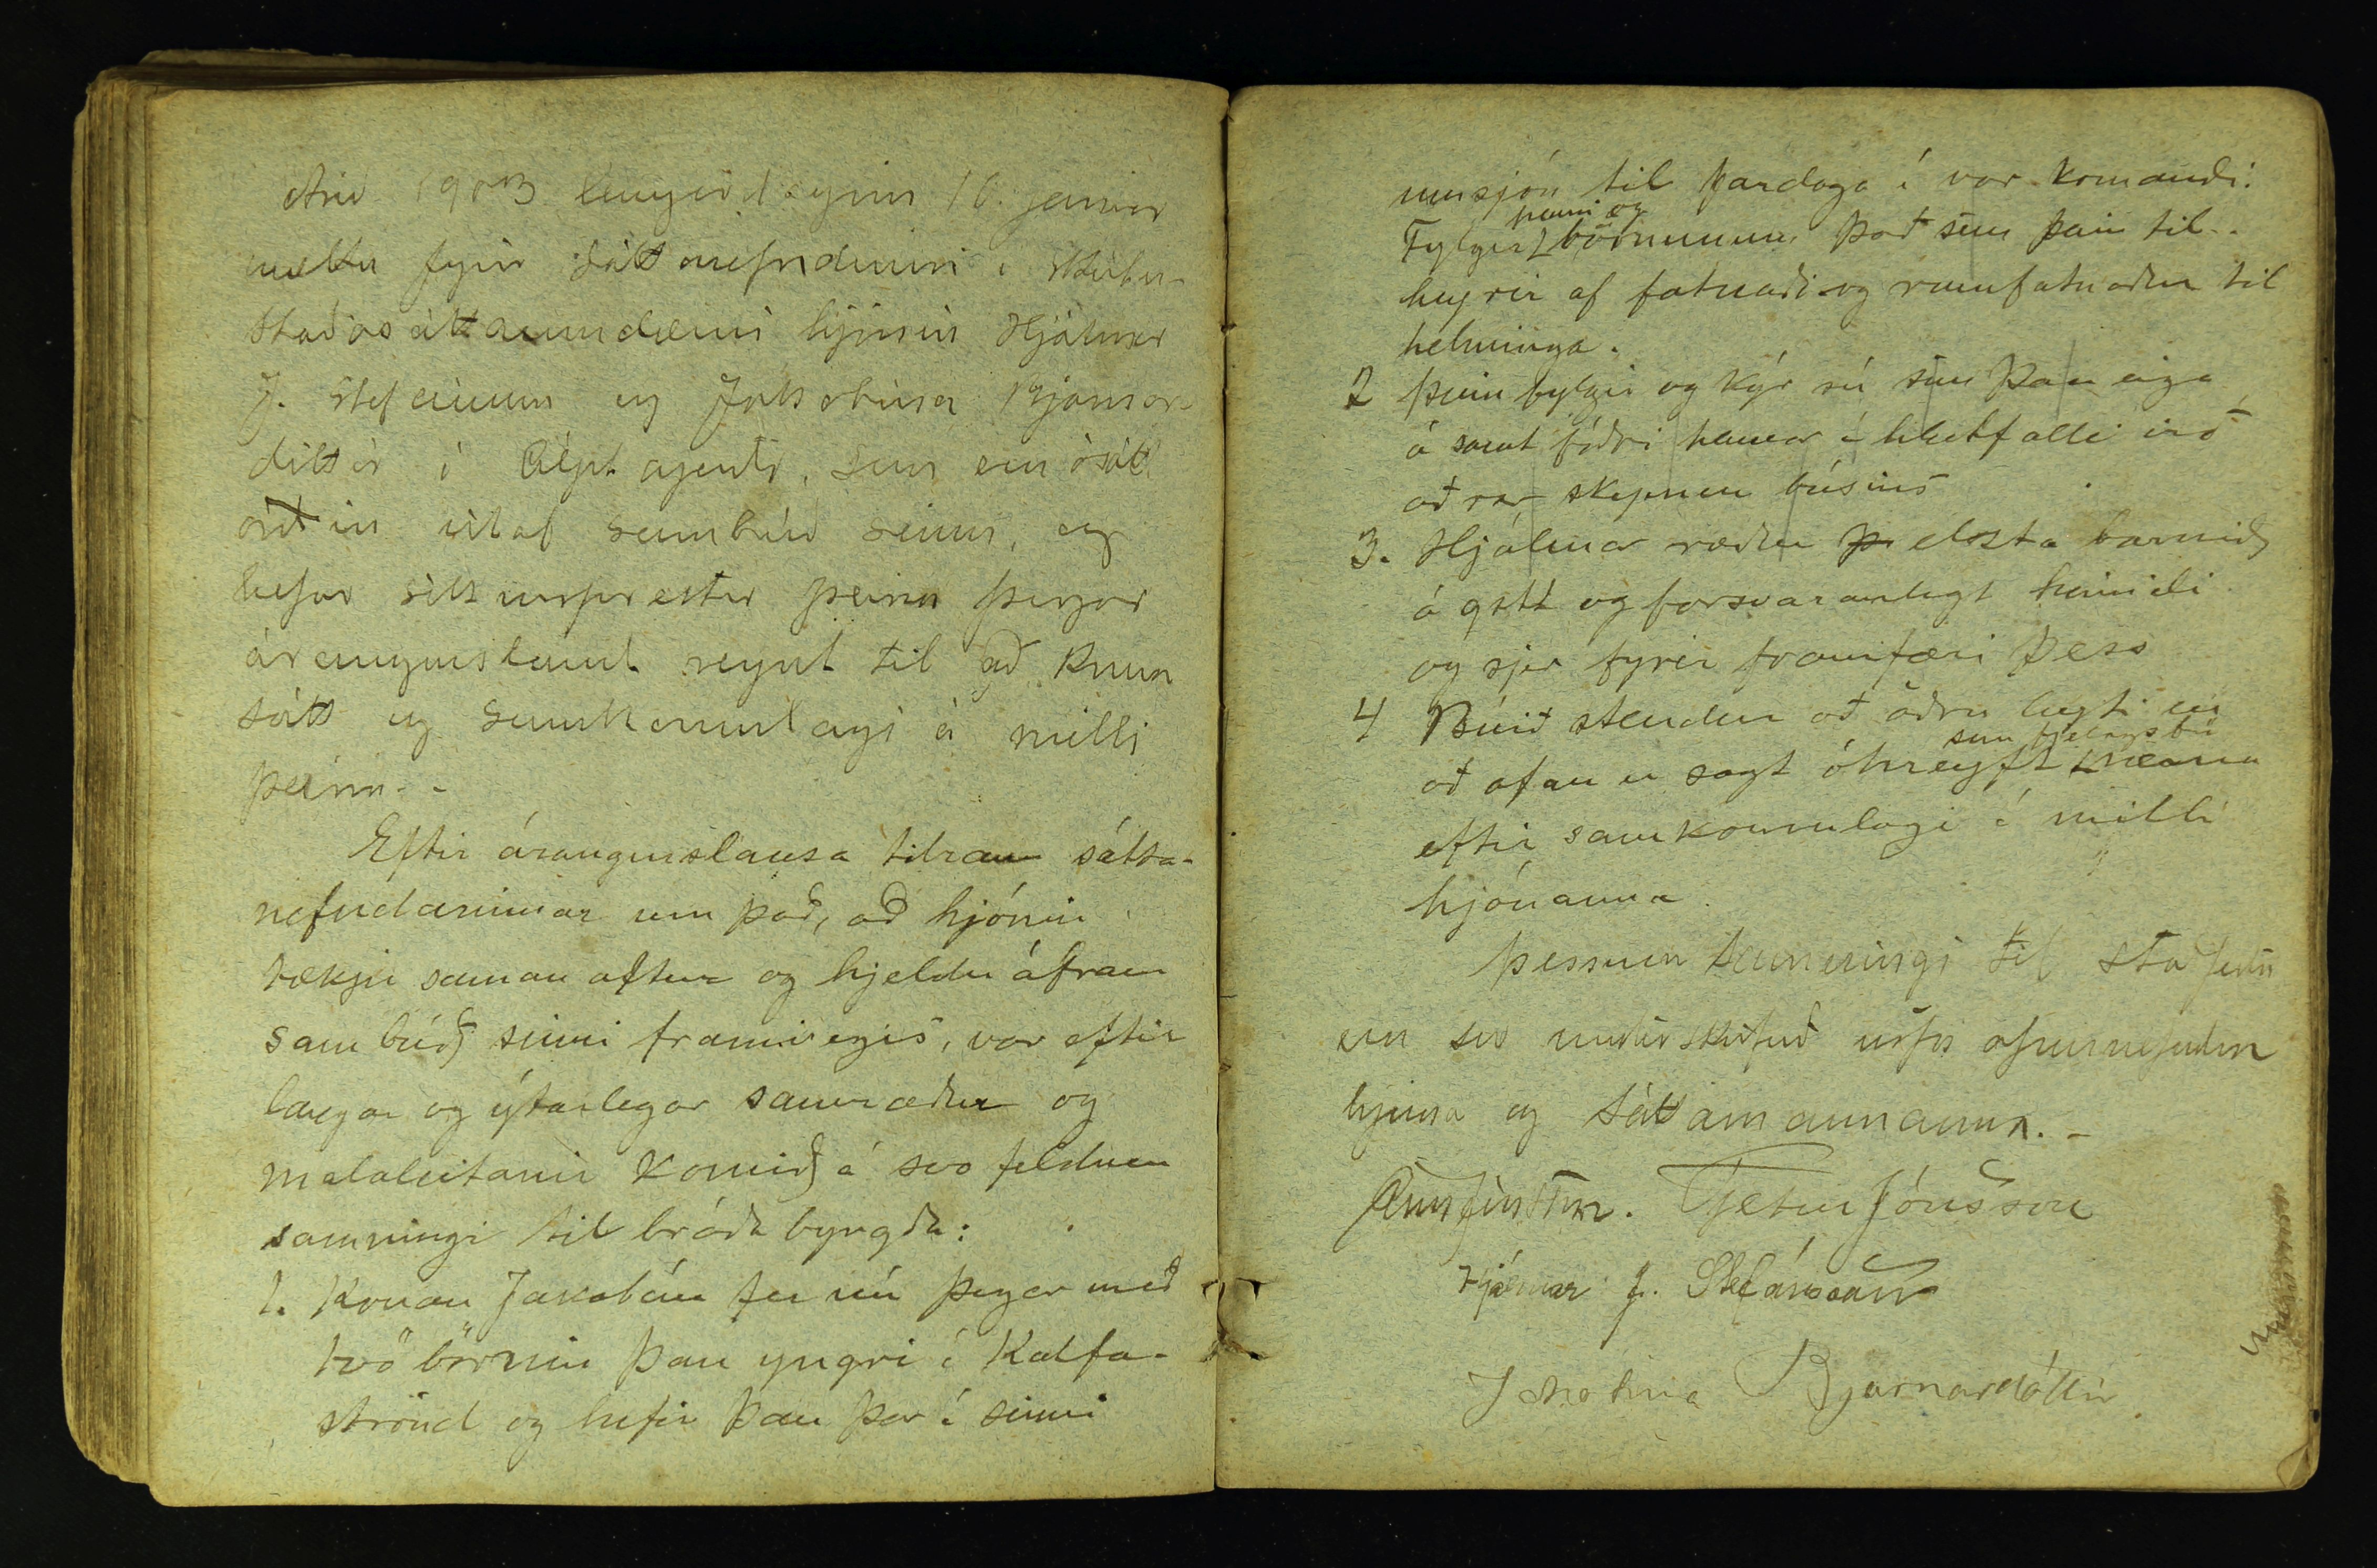 Árið 1903 laugardaginn 10. janúar
mættu fyrir sáttanefndinni í Skútu-
staðasáttaumdæmi hjónin Hjálmar
J. Stefánsson og Jakobína Bjarnar-
dóttir í Álptagerði, sem eru ósátt
orðin útaf sambúð sinni, og
hefur sóknarprestur þeirra þegar
árangurslaust reynt til að koma
sátt og samkomulagi á milli
þeirra. -
Eftir árangurslausa tilraun sátta-
nefndarinnar um það, að hjónin
tækju saman aftur og hjeldu áfram
sambúð sinni framvegis, var eftir
langar og ýtarlegar samræður og
málaleitanir komið á svo feldum
samningi til bráðabyrgða:
1. Konan Jakobína fer nú þegar með
tvö börnin þau yngri í Kalfa-
strönd og hefir þau þar í sinni
umsjón til fardaga í vor komandi.
henni og
Fylgir börnunum það sem þeim til-
heyrir af fatnaði og rúmfatnaður til
helminga.
2 Þeim fylgir og kýr sú sem þau eiga
á samt fóðri hennar í hlutfalli við
aðrar skepnur búsins
3. Hjálmar ræður þ elsta barnið
á gott og forsvaranlegt heimili
og sjer fyrir framfæri þess
4 Búið stendur að öðru leyti en
sem fjelagsbú
að ofan er sagt óhreyft
eftir samkomulagi á milli
hjónanna.
Þessum samningi til staðfestu
eru svo undirskrifuð nöfn ofannefndra
hjóna og sáttamannanna. -
Árni Jónsson. Pjetur Jónsson
Hjálmar J. Stefánsson
Jakobína Bjarnardóttir